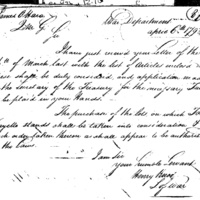 James O'Hara
War Department
April 6th 179
Sir
I have just received your letter of the
th of March last with the list of Articles
shall be duly considered, and application made
the Secretary of the Treasury for the necessary
be placed in your hands.
The purchase of the lots on which Fort
Fayette stands shall be taken into consideration
order taken thereon as shall appear to be
I am Sir
your humble Servant
Henry Knox
Secy of War